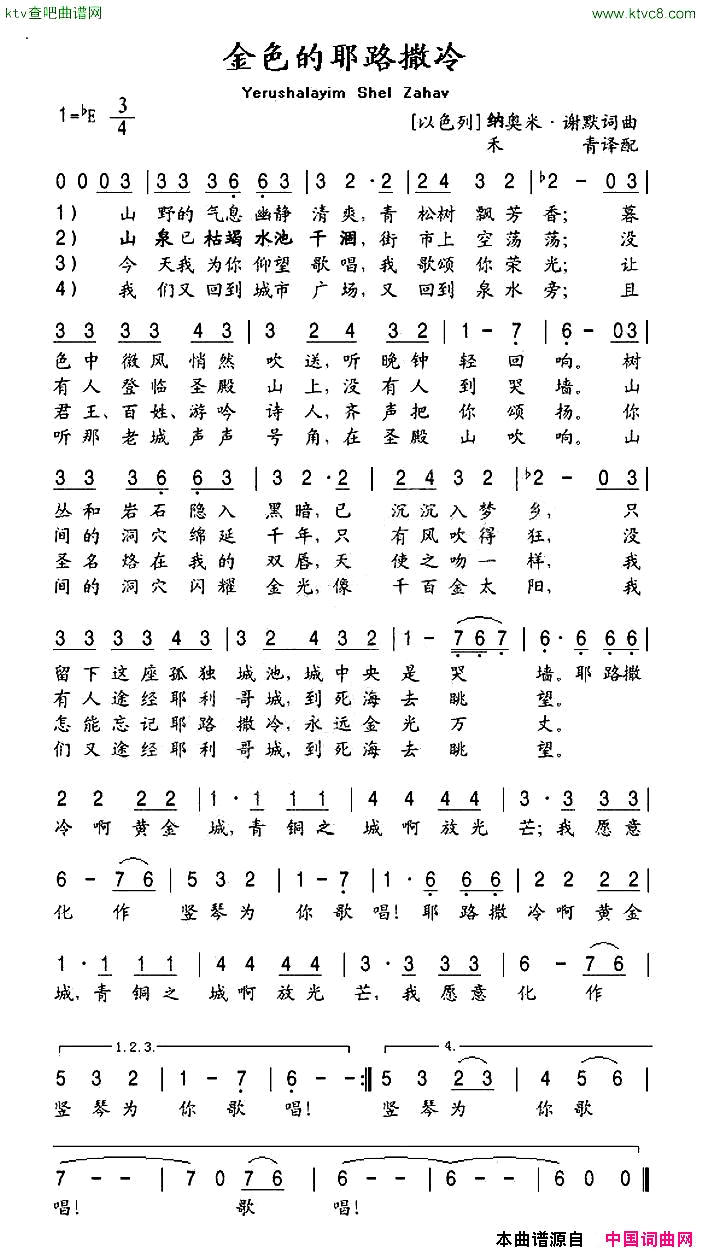 ktv查吧曲谱网
www.ktvc8.com
金色的耶路撒冷
Yerushalayim Shel Zahav
1=♭E 3/4
[以色列]纳奥米·谢默词曲
禾 青译配
0 0 0 3 | 3 3 3 6 6 3 | 3 2 · 2 | 2 4 3 2 | ♭2 - 0 3 |
1) 山 野的气息幽静 清爽，青 松树 飘芳香；暮
2) 山 泉已枯竭水池 干涸，街 市上 空荡荡；没
3) 今 天我为你仰望 歌唱，我 歌颂 你荣光；让
4) 我 们又回到城市 广场，又 回到 泉水旁；且
3 3 3 3 4 3 | 3 2 4 3 2 | 1 - 7 | 6 - 0 3 |
色中微风悄然 吹送，听晚钟 轻回响。树
有人登临圣殿 山上，没有人 到哭墙。山
君王、百姓、游吟 诗人，齐声把 你颂扬。你
听那老城声声 号角，在圣殿 山吹响。山
3 3 3 6 6 3 | 3 2 · 2 | 2 4 3 2 | ♭2 - 0 3 |
丛和岩石隐入 黑暗，已 沉沉入梦乡，只
间的洞穴绵延 千年，只 有风吹得狂，没
圣名烙在我的 双唇，天 使之吻一样，我
间的洞穴闪耀 金光，像 千百金太阳，我
3 3 3 3 4 3 | 3 2 4 3 2 | 1 - 7 6 7 | 6 · 6 6 6 |
留下这座孤独 城池，城中央 是哭 墙。耶路撒
有人途经耶利 哥城，到死海 去眺 望。
怎能忘记耶路 撒冷，永远金 光万 丈。
们又途经耶利 哥城，到死海 去眺 望。
2 2 2 2 | 1 · 1 1 1 | 4 4 4 4 | 3 · 3 3 3 |
冷啊黄金 城，青铜之 城啊放光 芒；我愿意
6 - 7 6 | 5 3 2 | 1 - 7 | 1 · 6 6 6 | 2 2 2 2 |
化 作 竖琴为 你歌 唱！耶路撒 冷啊黄金
1 · 1 1 1 | 4 4 4 4 | 3 · 3 3 3 | 6 - 7 6 |
城，青铜之 城啊放光 芒，我愿意 化 作
1.2.3. 4.
5 3 2 | 1 - 7 | 6 - - :‖ 5 3 2 3 | 4 5 6 |
竖琴为 你歌 唱！ 竖琴为 你歌
7 - - | 7 0 7 6 | 6 - - | 6 - - | 6 0 0 ‖
唱！ 歌 唱！
本曲谱源自 中国词曲网